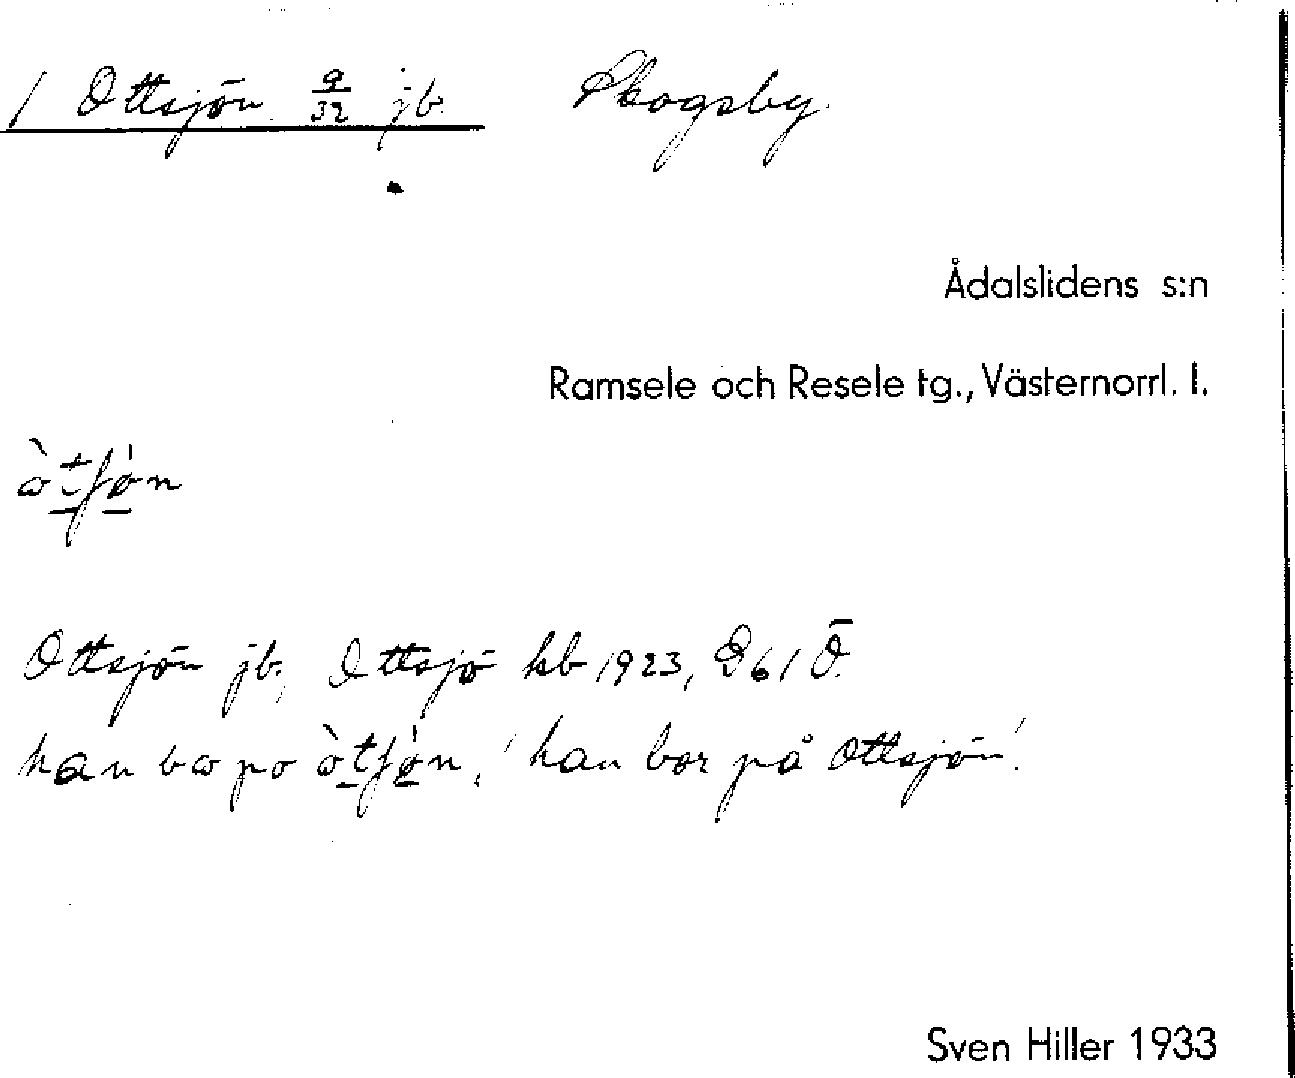 1 Ottsjön 9/32 jb. Skogsby.
Ådalslidens s:n
Ramsele och Resele tg., Västernorrl. l.
ὼtʃøn
Ottsjön jb., Ottsjö kb 1923, 261 Ö.
han bω po ὼtʃøn, 'han bor på Ottsjön'.
Sven Hiller 1933